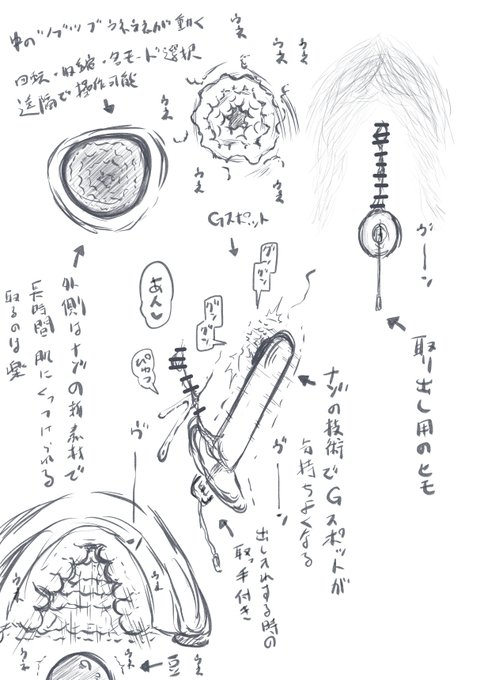 中のツブツブウネウネが動く
回転・収縮・各モード選択
遠隔で操作可能
ウネ
ウネ
ウネ
ウネ
ウネ
ウネ
Gスポット
ヴーーン
取り出し用のヒモ
外側はナゾの新素材で
長時間肌にくっつけられる
取るのは楽
あん♥
ぴゅっ
グン
グン
グン
グン
ナゾの技術でGスポットが
気持ちよくなる
ヴーーン
ヴーー
出し入れする時の
取っ手付き
ウネ
ウネ
ウネ
ウネ
豆
ウネ